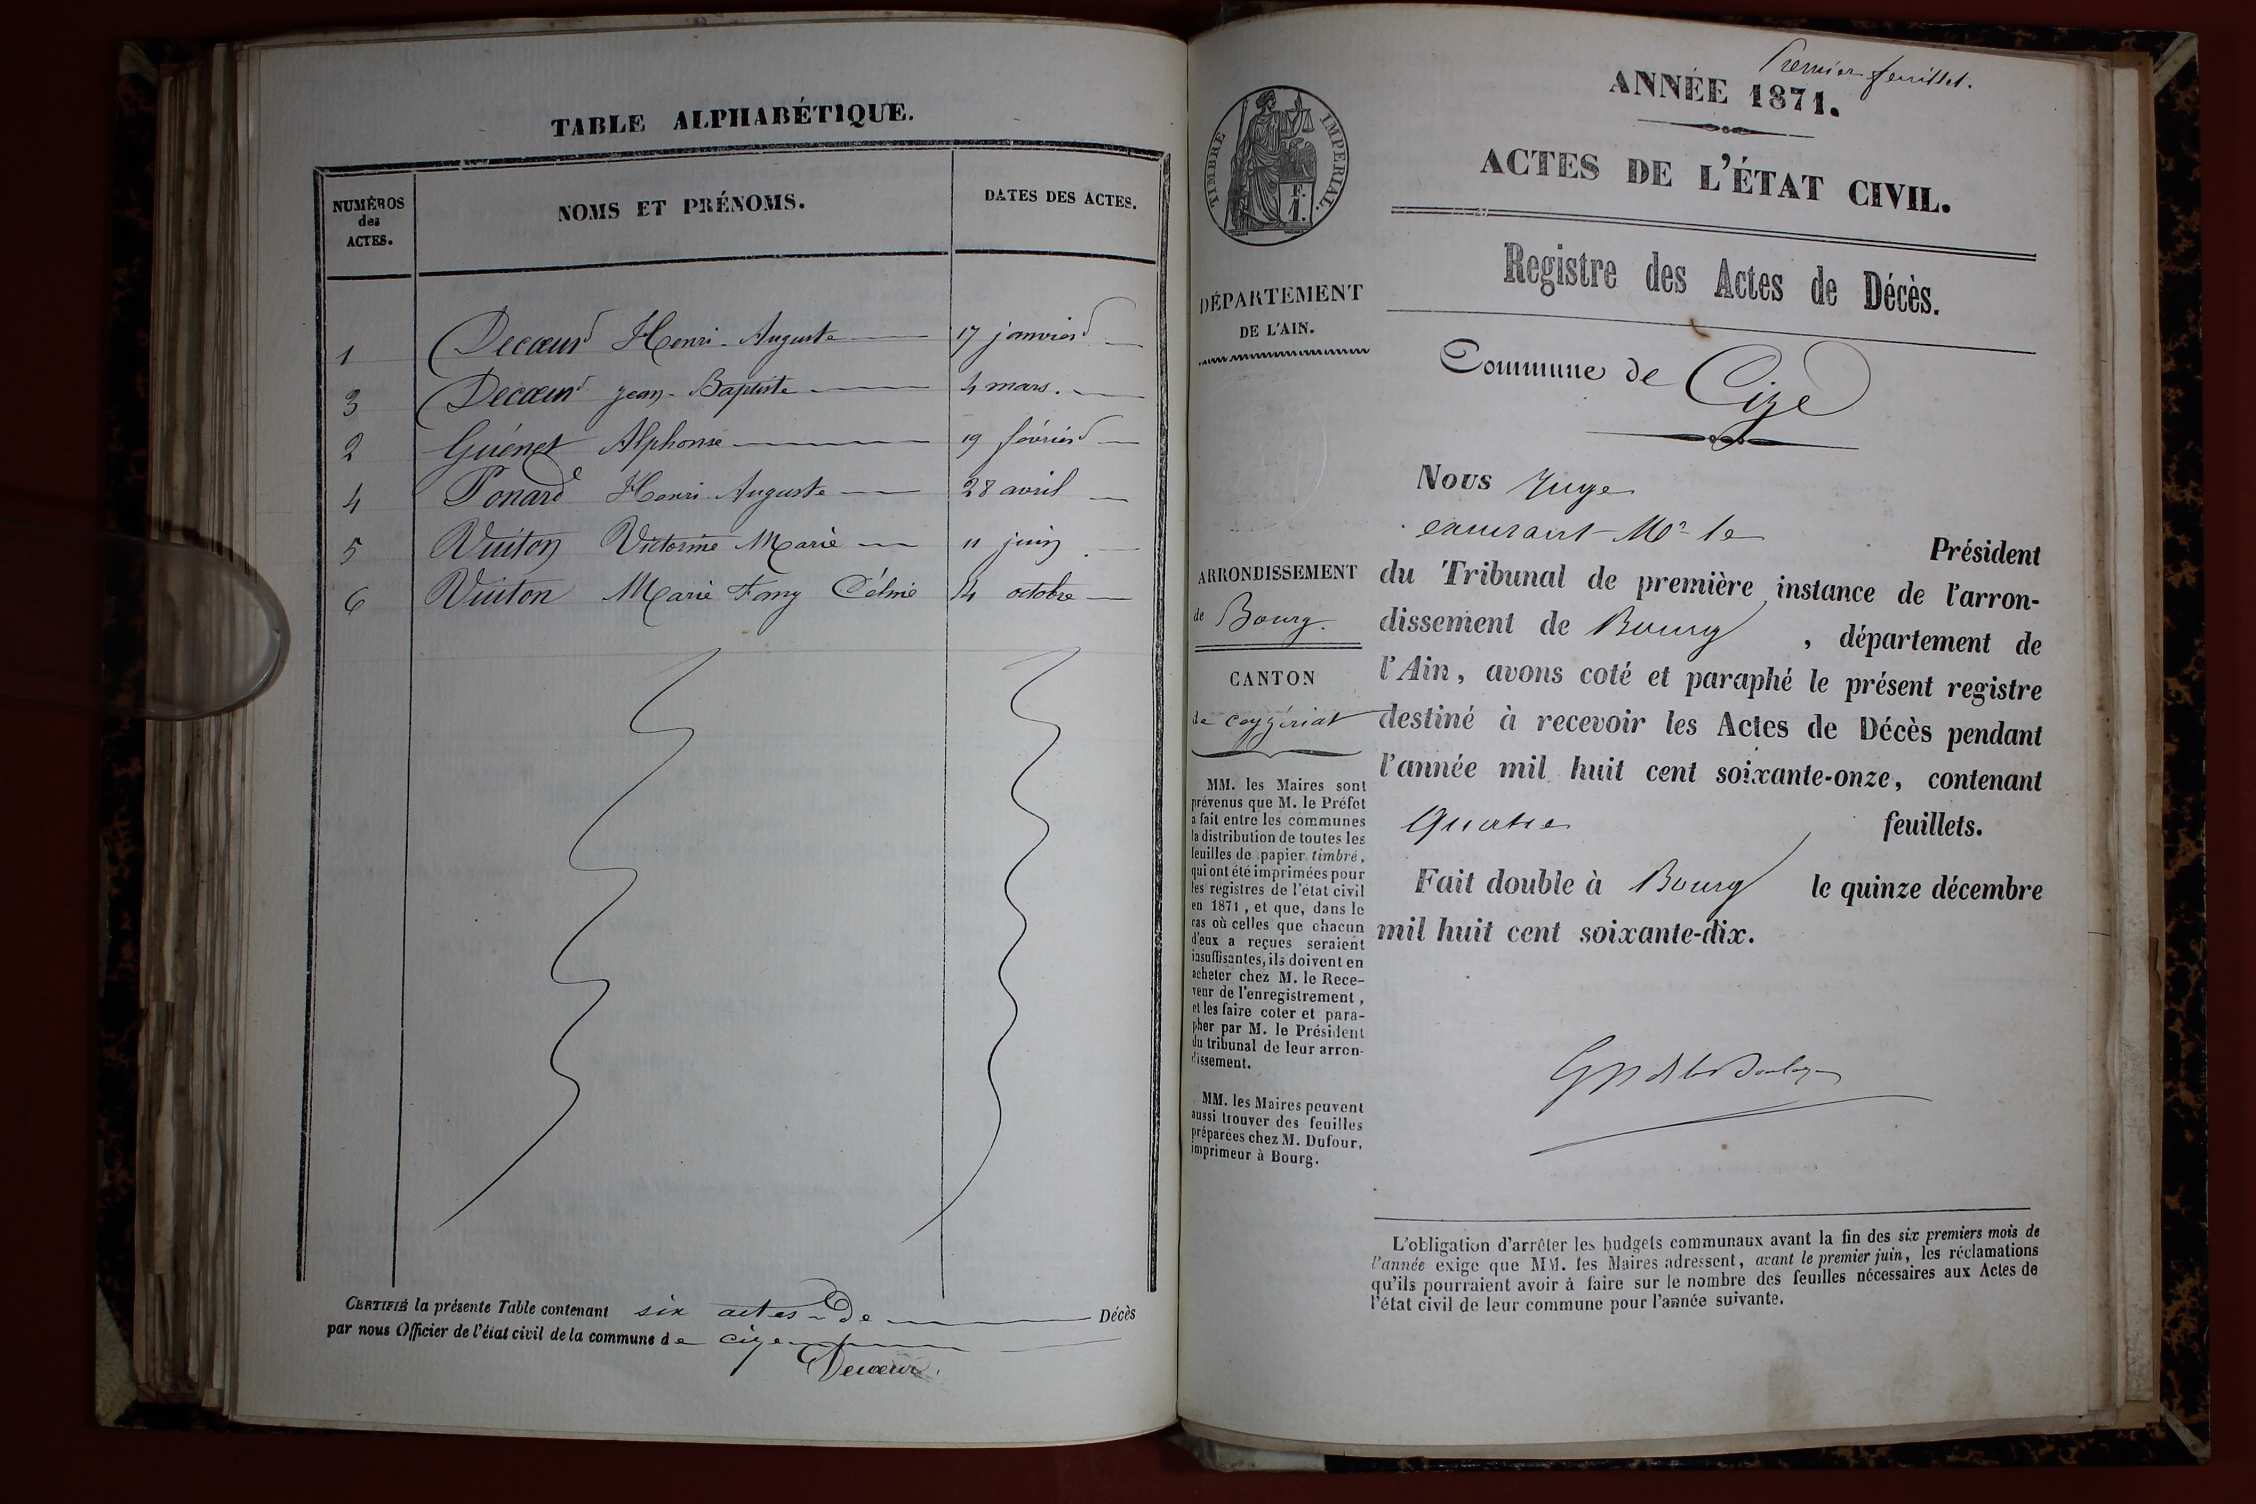 TABLE ALPHABÉTIQUE.
NUMÉROS
des
ACTES.
NOMS ET PRÉNOMS.
DATES DES ACTES.
1 Decœur Henri Auguste 17 janvier
3 Decœur jean-Baptiste 4 mars.
2 Guénet Alphonse 19 février
4 Ponard Henri Auguste 28 avril
5 Vuiton Victorine Marie 11 juin
6 Vuiton Marie Fany Célinie 14 octobre
CERTIFIÉ la présente Table contenant six actes de Décès
par nous Officier de l'état civil de la commune de cize
Decœur
Premier feuillet.
ANNÉE 1871.
ACTES DE L'ÉTAT CIVIL.
Registre des Actes de Décès.
TIMBRE IMPÉRIAL.
F.
1.
DÉPARTEMENT
DE L'AIN.
ARRONDISSEMENT
de Bourg.
CANTON
de ceyzériat
MM. les Maires sont
prévenus que M. le Préfet
a fait entre les communes
la distribution de toutes les
feuilles de papier timbré,
qui ont été imprimées pour
les registres de l'état civil
en 1871, et que, dans le
cas où celles que chacun
d'eux a reçues seraient
insuffisantes, ils doivent en
acheter chez M. le Rece-
veur de l'enregistrement,
et les faire coter et para-
pher par M. le Président
du tribunal de leur arron-
dissement.
MM. les Maires peuvent
aussi trouver des feuilles
préparées chez M. Dufour,
imprimeur à Bourg.
Commune de Cize
Nous Juge
Mr le Président
du Tribunal de première instance de l'arron-
dissement de Bourg, département de
l'Ain, avons coté et paraphé le présent registre
destiné à recevoir les Actes de Décès pendant
l'année mil huit cent soixante-onze, contenant
Quatre feuillets.
Fait double à Bourg le quinze décembre
mil huit cent soixante-dix.
L'obligation d'arrêter les budgets communaux avant la fin des six premiers mois de
l'année exige que MM. les Maires adressent, avant le premier juin, les réclamations
qu'ils pourraient avoir à faire sur le nombre des feuilles nécessaires aux Actes de
l'état civil de leur commune pour l'année suivante.